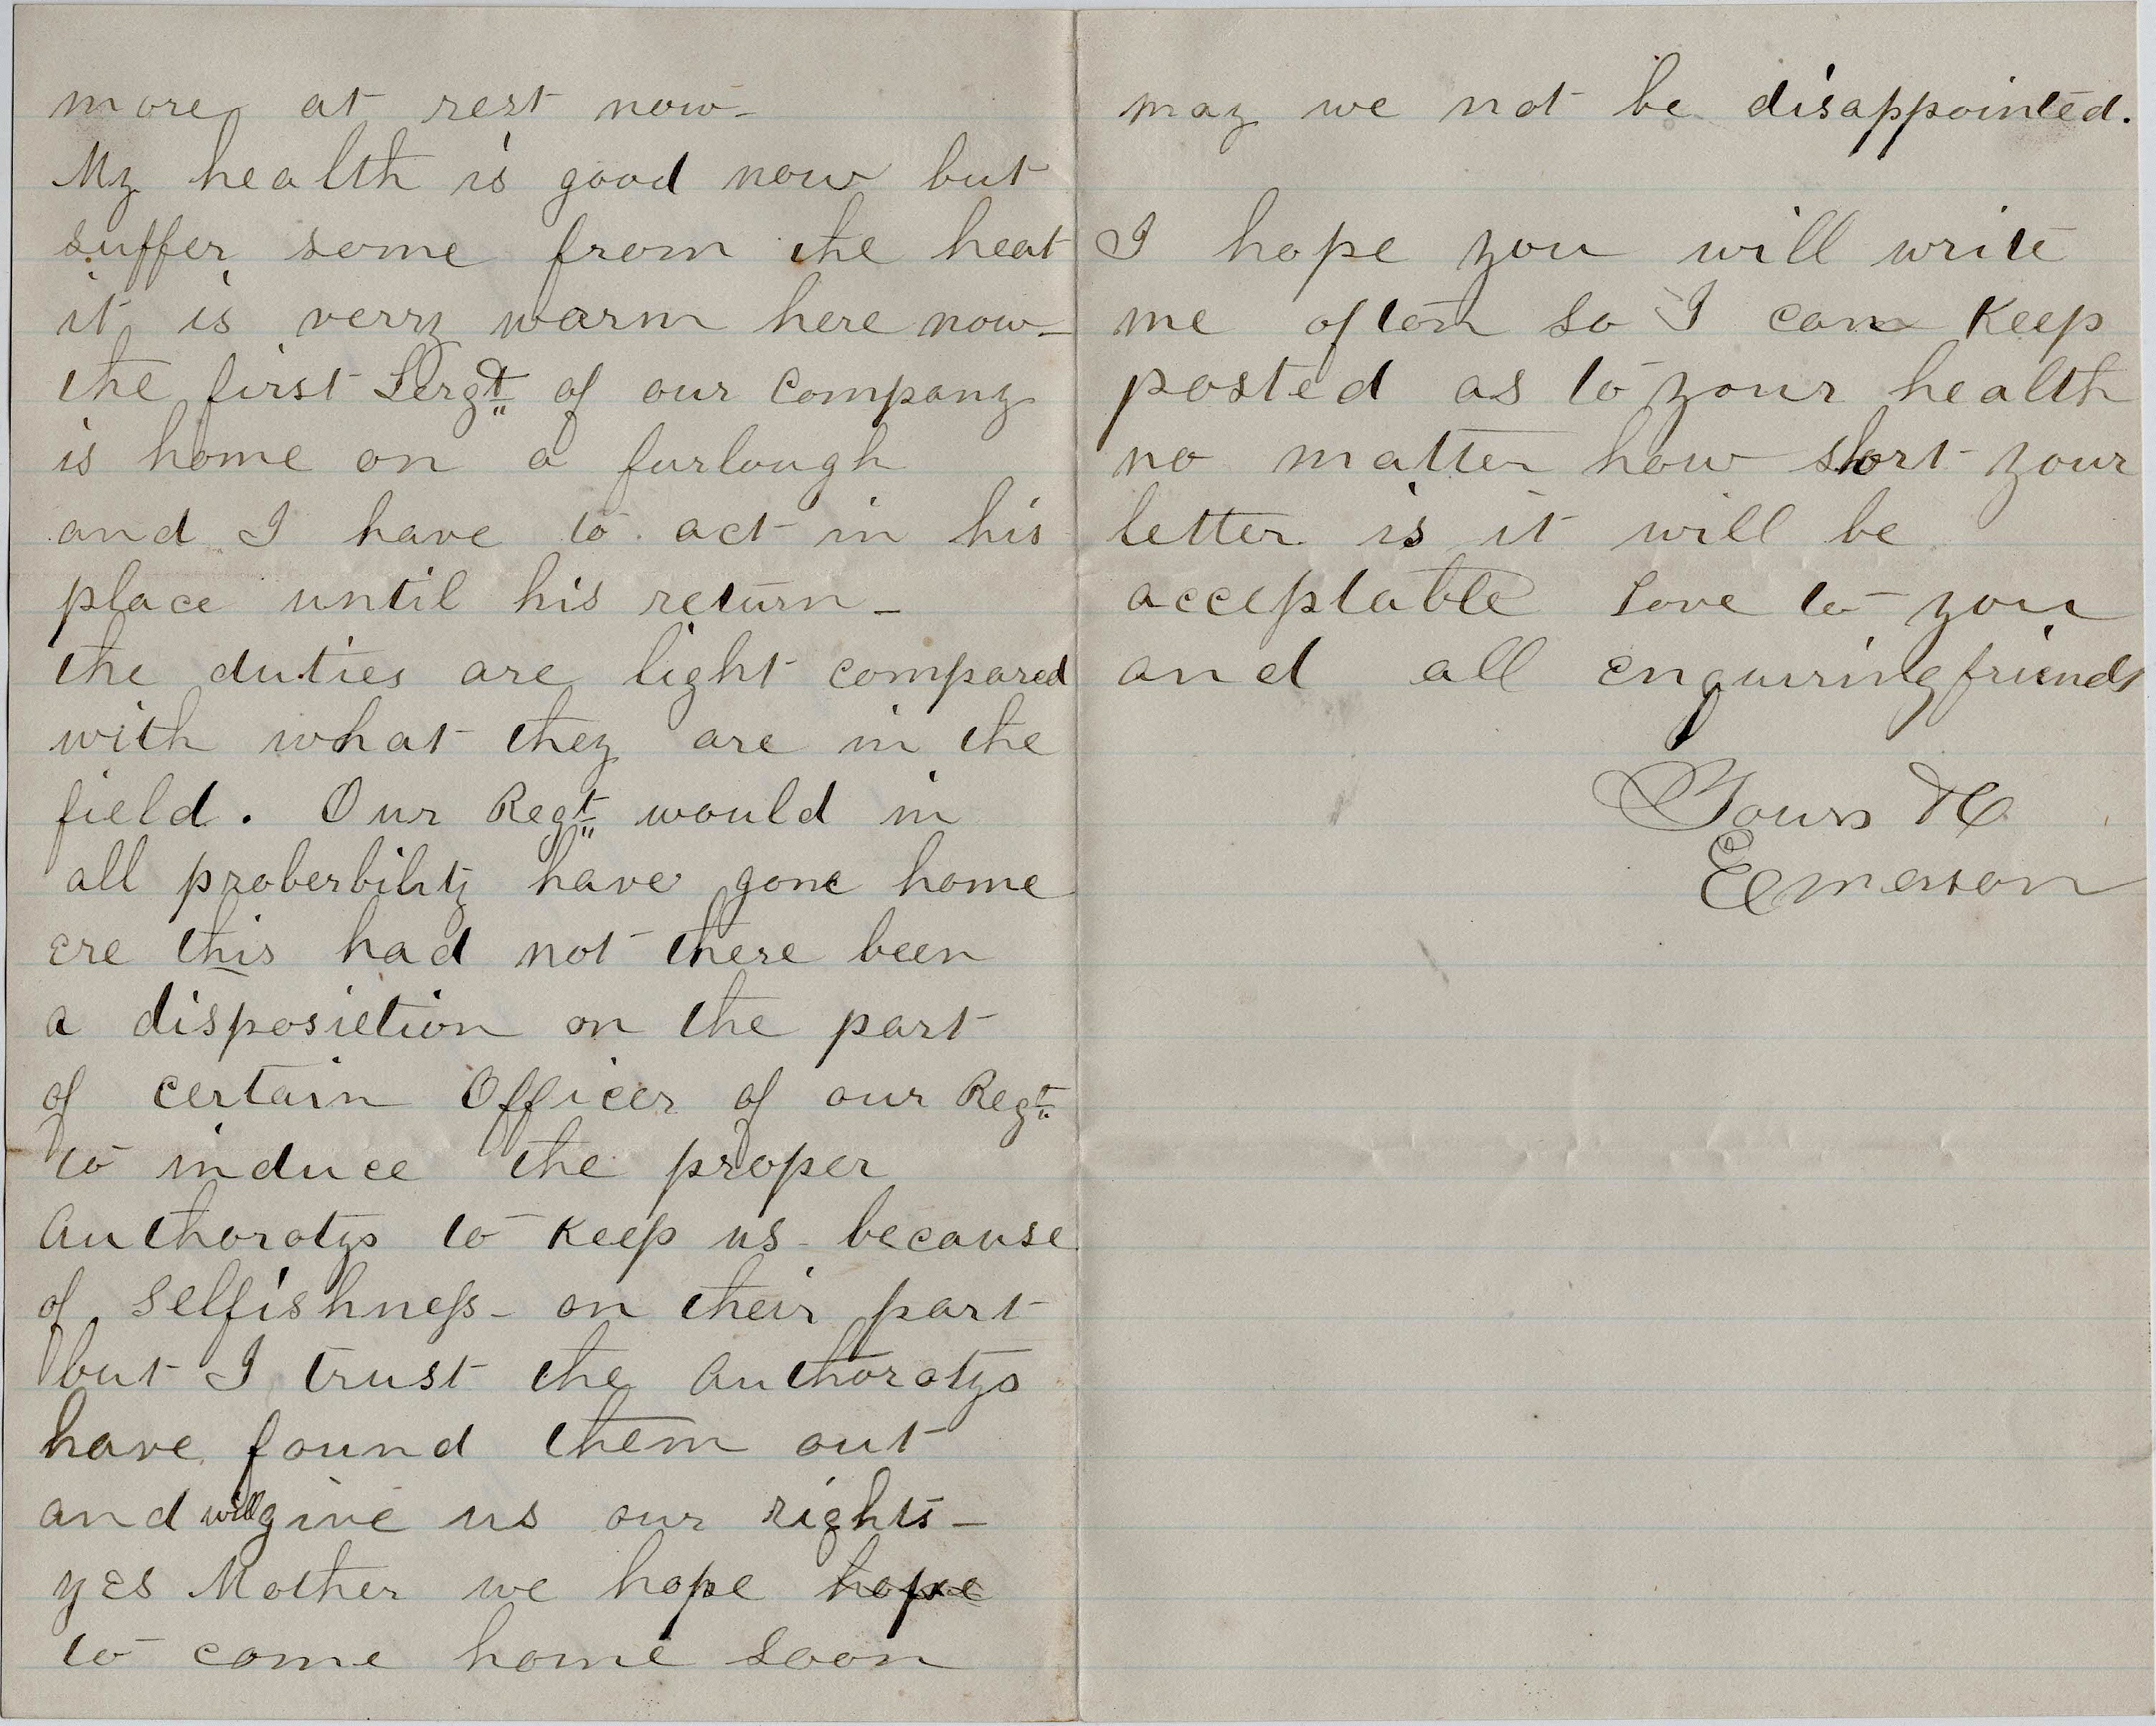 more at rest now-
My health is good now but
suffer some from the heat
it is verry warm here now-
the first Sergt of our company
is home on a furlough
and I have to act in his
place until his return-
the duties are light compared
with what they are in the
field. Our Regt would in
all proberbility have gone home
ere this had not there been
a disposietion on the part
of certain Officer of our Regt
to induce the proper
authoratys to keep us because
of selfishness- on their part
but I trust the authoratys
have found them out
and will give us our rights-
yes Mother we hope hope
to come home soon
may we not be disappointed.
I hope you will write
me often so I can keep
posted as to your health
no matter how short your
letter is it will be
acceptable Love to you
and all enquiring friends
Yours &c
Emerson